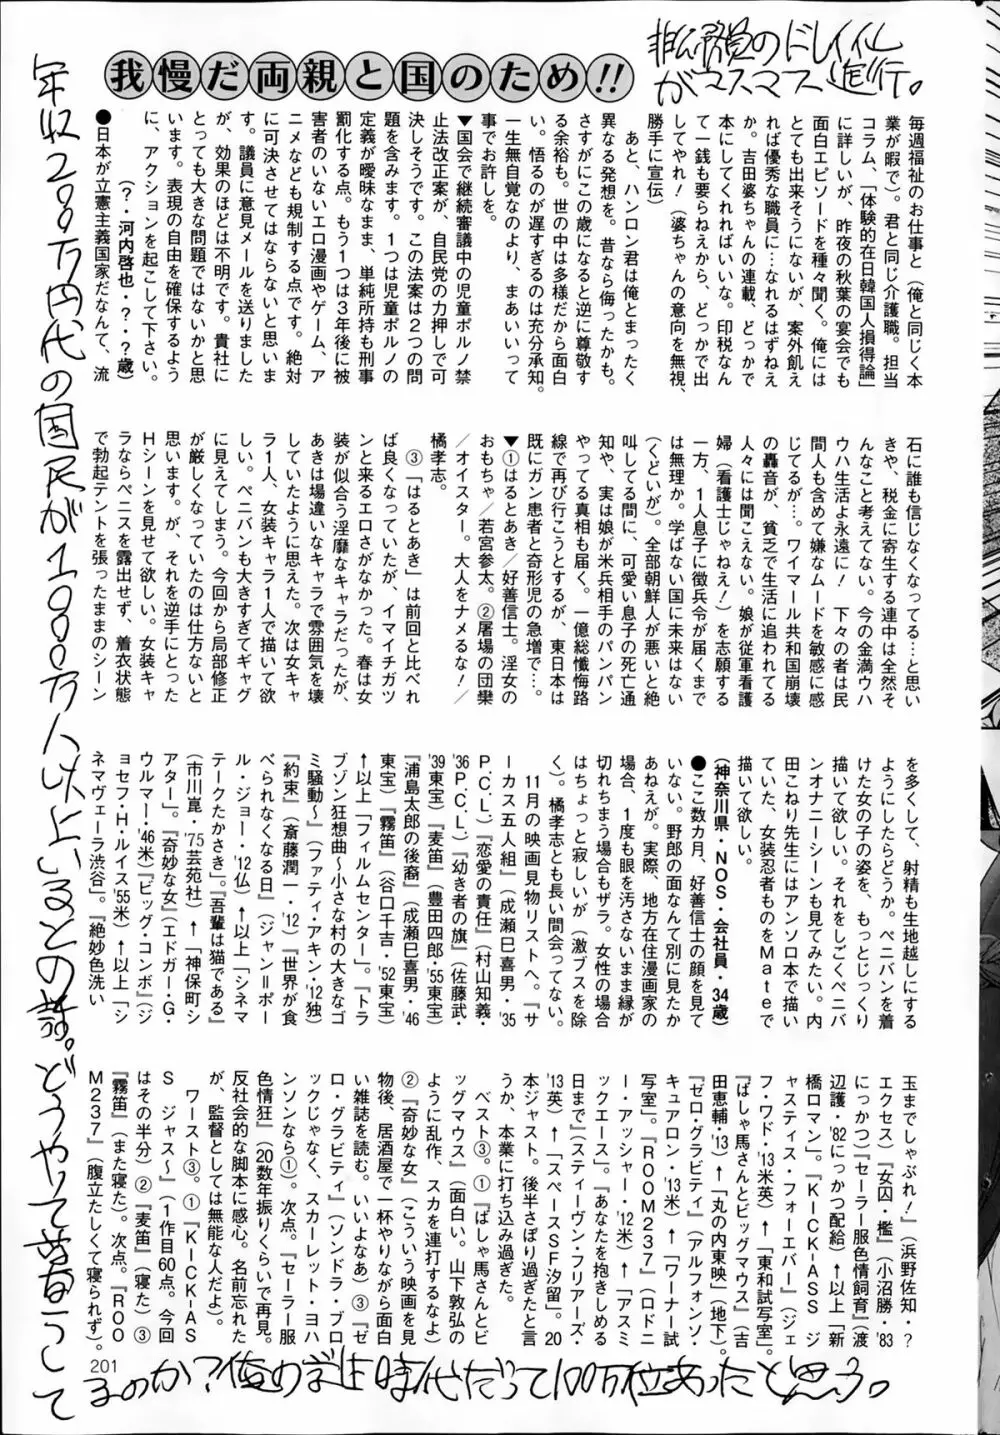 我慢だ両親と国のため!!
非公務員のドレイ化
がマスマス進行。
毎週福祉のお仕事と(俺と同じく本
業が暇で)。君と同じ介護職。担当
コラム、「体験的在日韓国人損得論」
に詳しいが、昨夜の秋葉の宴会でも
面白エピソードを種々聞く。俺には
とても出来そうにないが、案外飢え
れば優秀な職員に…なれるはずねえ
か。吉田婆ちゃんの連載、どっかで
本にしてくれればいいな。印税なん
て一銭も要らねえから、どっかで出
してやれ!(婆ちゃんの意向を無視、
勝手に宣伝)
あと、ハンロン君は俺とまったく
異なる発想を。昔なら侮ったかも。
さすがにこの歳になると逆に尊敬す
る余裕も。世の中は多様だから面白
い。悟るのが遅すぎるのは充分承知。
一生無自覚なのより、まあいいって
事でお許しを。
▼国会で継続審議中の児童ポルノ禁
止法改正案が、自民党の力押しで可
決しそうです。この法案は2つの問
題を含みます。1つは児童ポルノの
定義が曖昧なまま、単純所持も刑事
罰化する点。もう1つは3年後に被
害者のいないエロ漫画やゲーム、ア
ニメなども規制する点です。絶対
に可決させてはならないと思いま
す。議員に意見メールを送りました
が、効果のほどは不明です。貴社に
とっても大きな問題ではないかと思
います。表現の自由を確保するよう
に、アクションを起こして下さい。
(?・河内啓也・?・?歳)
●日本が立憲主義国家だなんて、流
石に誰も信じなくなってる…と思い
きや、税金に寄生する連中は全然そ
んなこと考えてない。今の金満ウハ
ウハ生活よ永遠に! 下々の者は民
間人も含めて嫌なムードを敏感に感
じてるが…。ワイマール共和国崩壊
の轟音が、貧乏で生活に追われてる
人々には聞こえない。娘が従軍看護
婦(看護士じゃねえ!)を志願する
一方、1人息子に徴兵令が届くまで
は無理か。学ばない国に未来はない
(くどいが)。全部朝鮮人が悪いと絶
叫してる間に、可愛い息子の死亡通
知や、実は娘が米兵相手のパンパン
やってる真相も届く。一億総懺悔路
線で再び行こうとするが、東日本は
既にガン患者と奇形児の急増で…。
▼①はるとあき/好善信士。淫女の
おもちゃ/若宮参太。②屠場の団欒
/オイスター。大人をナメるな!/
橘孝志。
③「はるとあき」は前回と比べれ
ば良くなっていたが、イマイチガツ
ンと来るエロさがなかった。春は女
装が似合う淫靡なキャラだったが、
あきは場違いなキャラで雰囲気を壊
していたように思えた。次は女キャ
ラ1人、女装キャラ1人で描いて欲
しい。ペニバンも大きすぎてギャグ
に見えてしまう。今回から局部修正
が厳しくなっていたのは仕方ないと
思います。が、それを逆手にとった
Hシーンを見せて欲しい。女装キャ
ラならペニスを露出せず、着衣状態
で勃起テントを張ったままのシーン
を多くして、射精も生地越しにする
ようにしたらどうか。ペニバンを着
けた女の子の姿を、もっとじっくり
描いて欲しい。それをしごくペニバ
ンオナニーシーンも見てみたい。内
田こねり先生にはアンソロ本で描い
ていた、女装忍者ものをMateで
描いて欲しい。
(神奈川県・NOS・会社員・34歳)
●ここ数カ月、好善信士の顔を見て
いない。野郎の面なんて別に見たか
あねえが。実際、地方在住漫画家の
場合、1度も眼を汚さないまま縁が
切れちまう場合もザラ。女性の場合
はちょっと寂しいが(激ブスを除
く)。橘孝志とも長い間会ってない。
11月の映画見物リストへ。『サ
ーカス五人組』(成瀬巳喜男・'35
P.C.L.)『恋愛の責任』(村山知義・
'36P.C.L.)『幼き者の旗』(佐藤武・
'39東宝)『麦笛』(豊田四郎・'55東宝)
『浦島太郎の後裔』(成瀬巳喜男・'46
東宝)『霧笛』(谷口千吉・'52東宝)
↑以上「フィルムセンター」。『トラ
ブゾン狂想曲〜小さな村の大きなゴ
ミ騒動〜』(ファティ・アキン・'12独)
『約束』(斎藤潤一・'12)『世界が食
べられなくなる日』(ジャン=ポー
ル・ジョー・'12仏)↑以上「シネマ
テークたかさき」。『吾輩は猫である』
(市川崑・'75芸苑社)↑「神保町シ
アター」。『奇妙な女』(エドガー・G・
ウルマー・'46米)『ビッグ・コンボ』(ジ
ョセフ・H・ルイス'55米)↑以上「シ
ネマヴェーラ渋谷」。『絶妙色洗い
玉までしゃぶれ!』(浜野佐知・?
エクセス)『女囚・檻』(小沼勝・'83
にっかつ)『セーラー服色情飼育』(渡
辺護・'82にっかつ配給)↑以上「新
橋ロマン」。『KICK-ASS ジ
ャスティス・フォーエバー』(ジェ
フ・ワド・'13米英)↑「東和試写室」。
『ばしゃ馬さんとビッグマウス』(吉
田恵輔・'13)↑「丸の内東映」(地下)。
『ゼロ・グラビティ』(アルフォンソ・
キュアロン・'13米)↑「ワーナー試
写室」。『ROOM237』(ロドニ
ー・アッシャー・'12米)↑「アスミ
ックエース」。『あなたを抱きしめる
日まで』(スティーヴン・フリアーズ・
'13英)↑「スペースSF汐留」。20
本ジャスト。後半さぼり過ぎたと言
うか、本業に打ち込み過ぎた。
ベスト③。①『ばしゃ馬さんとビ
ッグマウス』(面白い。山下敦弘の
ように乱作、スカを連打するなよ)
②『奇妙な女』(こういう映画を見
物後、居酒屋で一杯やりながら面白
い雑誌を読む。いいよなあ)③『ゼ
ロ・グラビティ』(ソンドラ・ブロ
ックじゃなく、スカーレット・ヨハ
ンソンなら①)。次点。『セーラー服
色情狂』(20数年振りくらいで再見。
反社会的な脚本に感心。名前忘れた
が、監督としては無能な人だよ)。
ワースト③。①『KICK-AS
S ジャス〜』(1作目60点。今回
はその半分)②『麦笛』(寝た)③
『霧笛』(また寝た)。次点。『ROO
M237』(腹立たしくて寝られず)。
201
年収200万円代の国民が1000万人以上いるとの話。どうやって暮して
るのか?俺の学生時代だって100万位あったと思う。